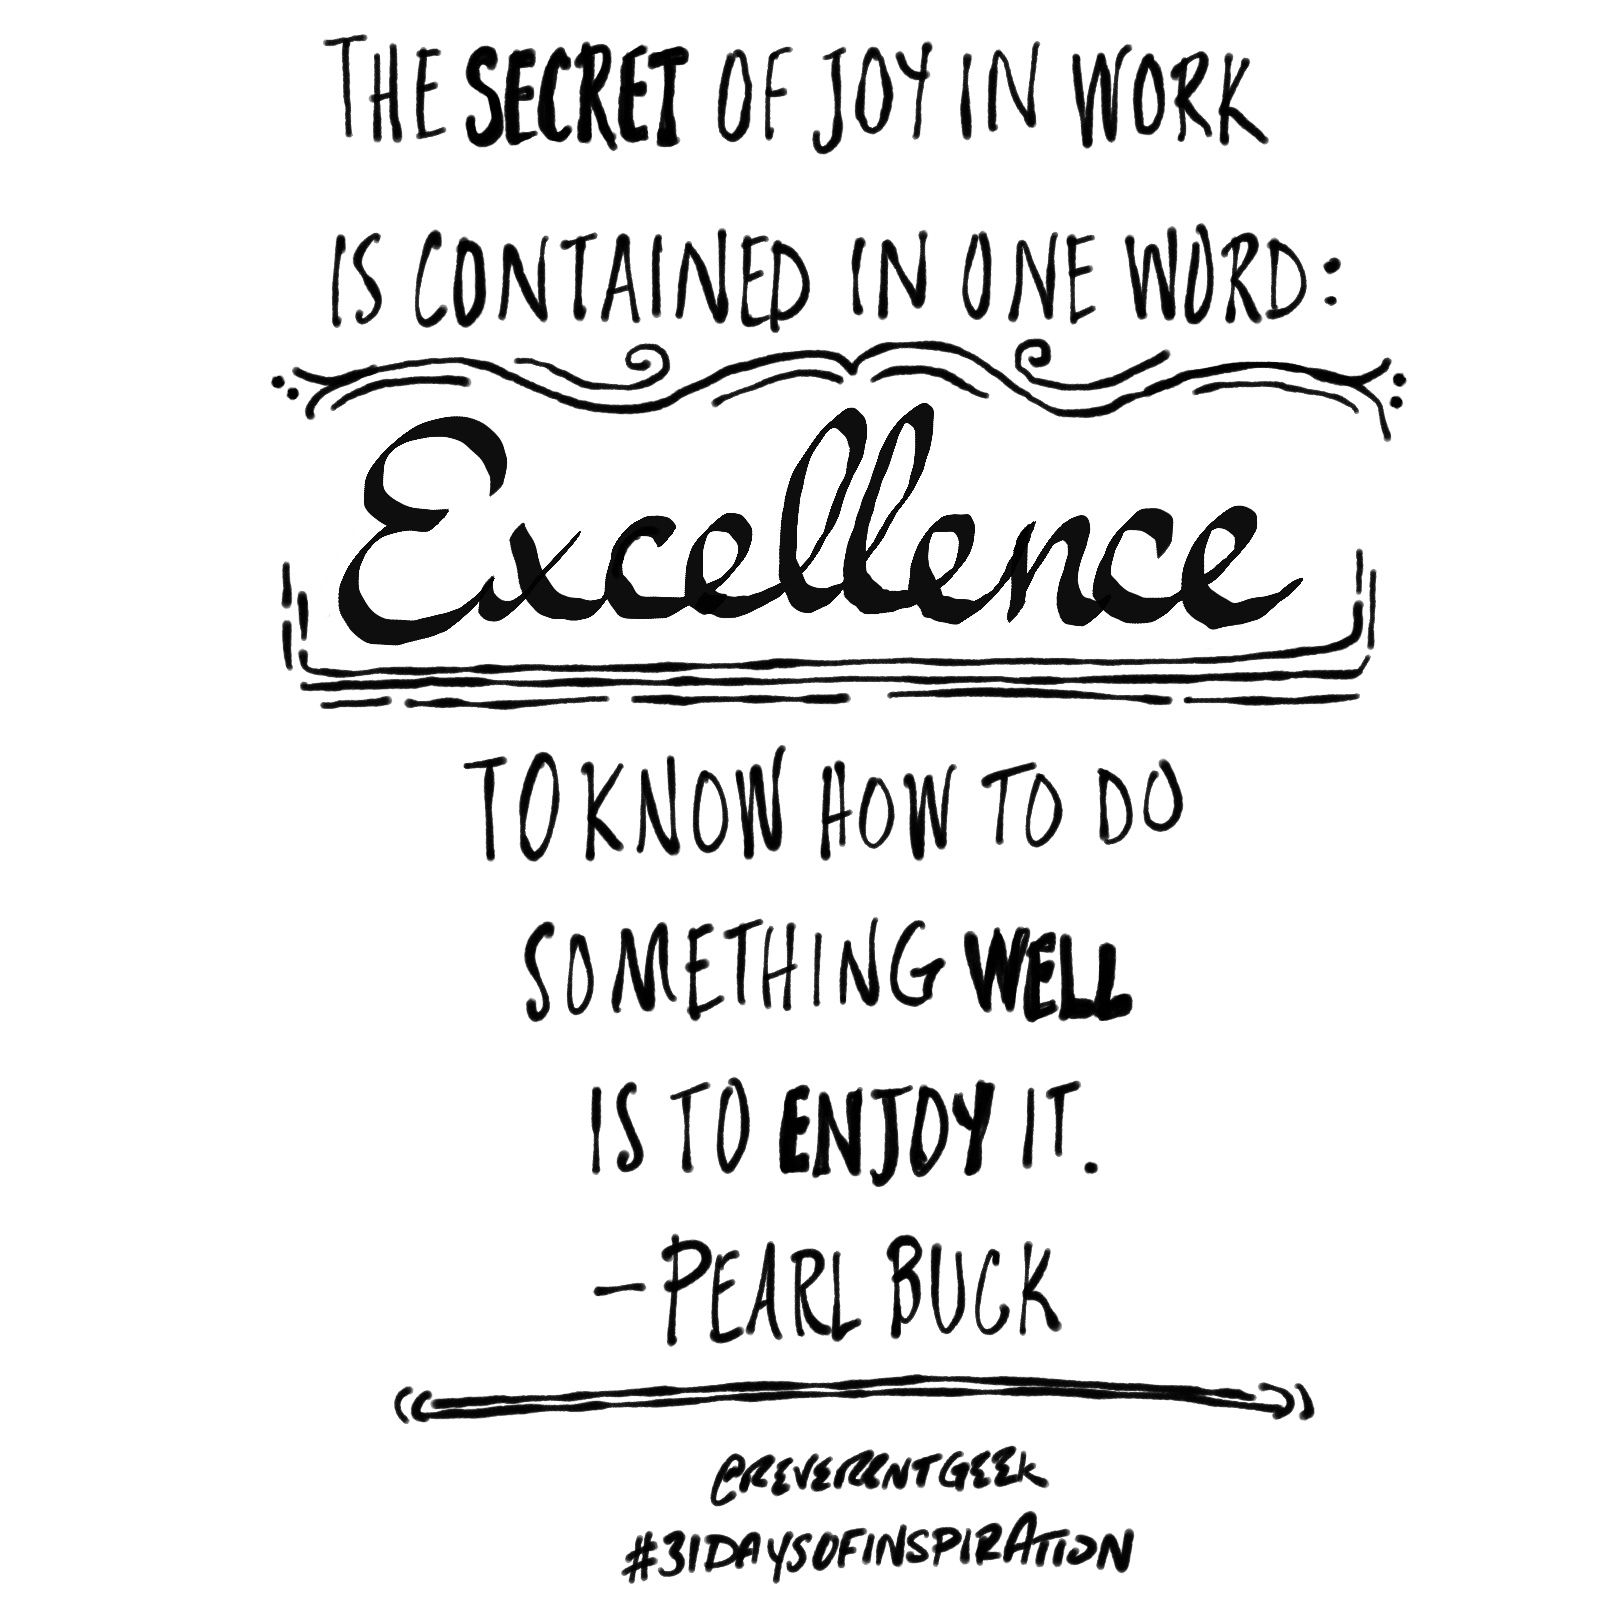 THE SECRET OF JOY IN WORK
IS CONTAINED IN ONE WORD:
Excellence
TO KNOW HOW TO DO
SOMETHING WELL
IS TO ENJOY IT.
–PEARL BUCK
@REVERENTGEEK
#31DAYSOFINSPIRATION